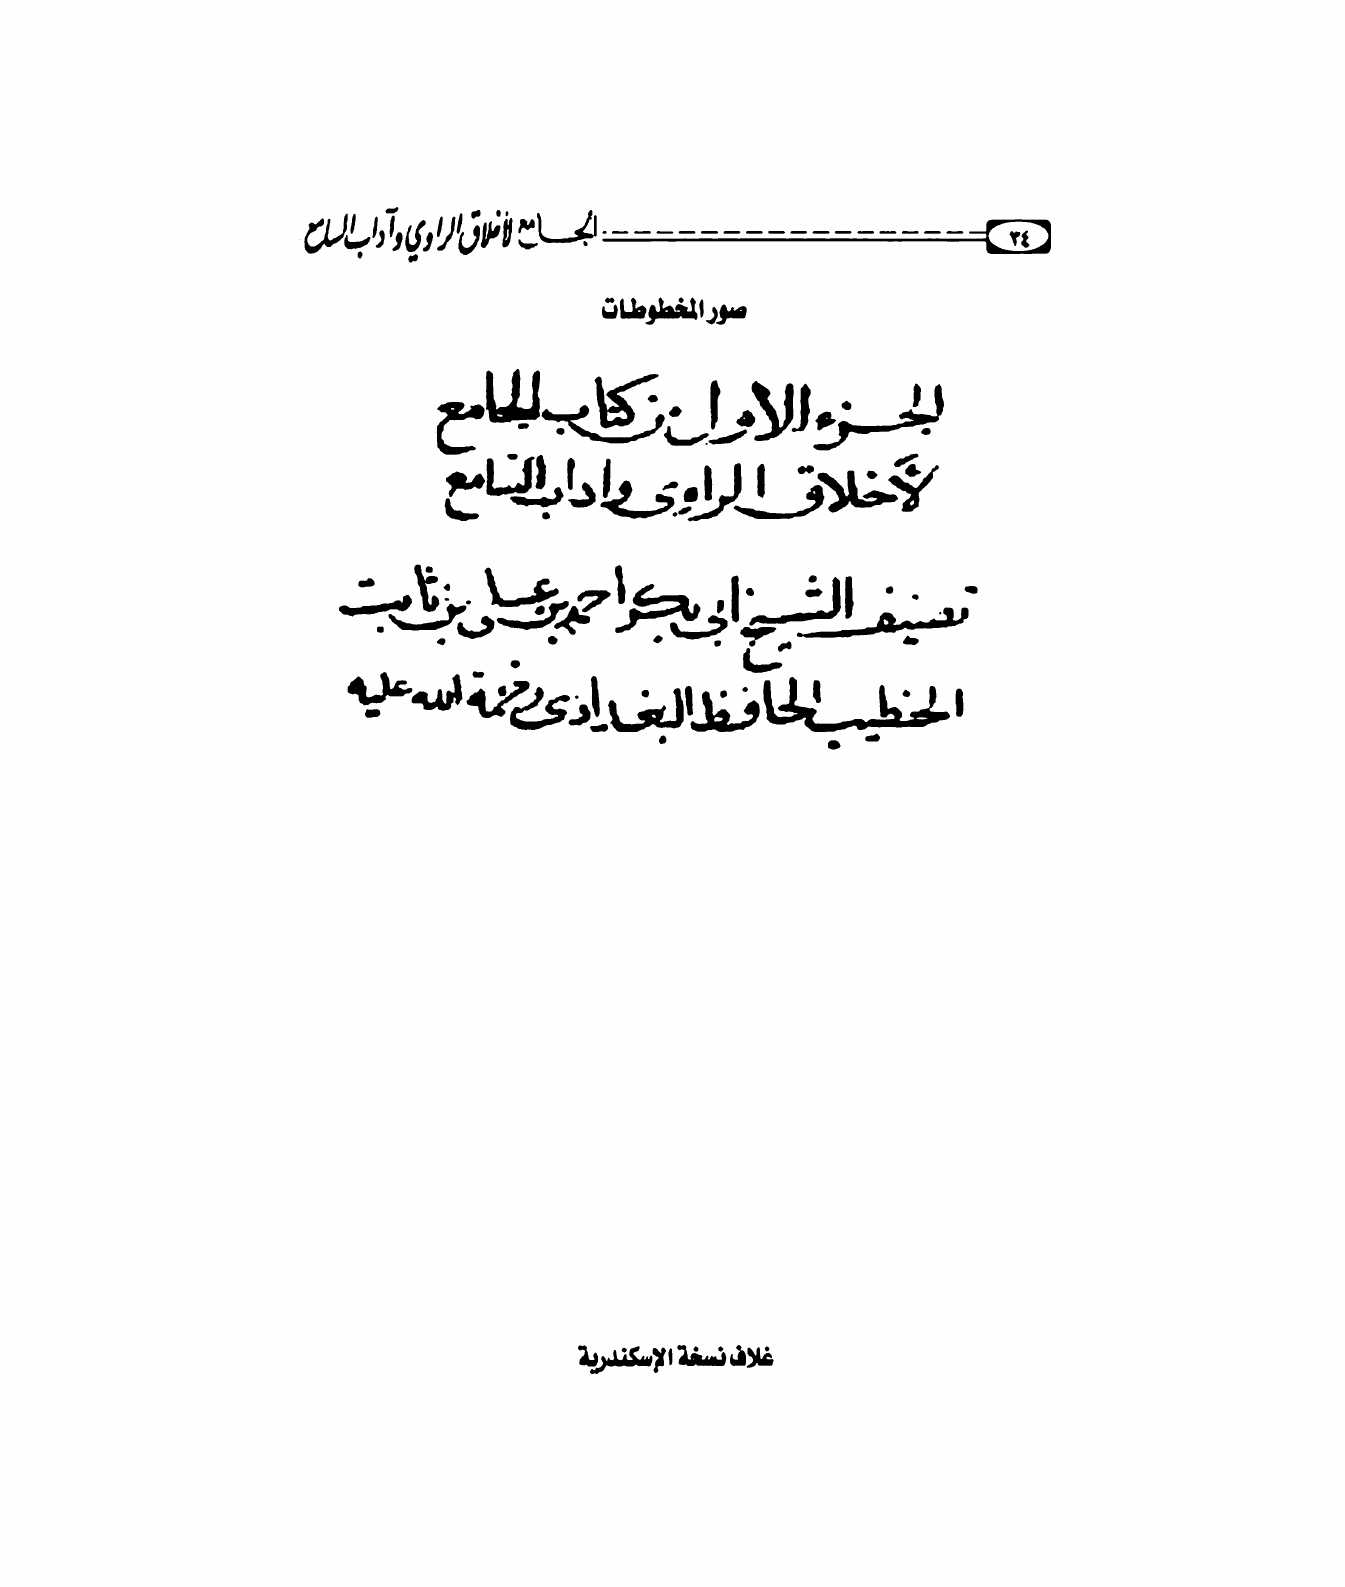 ٣٤ الجامع لأخلاق الراوي وآداب السامع
صور المخطوطات
الجزء الاول من كتاب الجامع
لأخلاق الراوى واداب السامع
تصنيف الشيخ ابى بكر احمد بن على بن ثابت
الخطيب الحافظ البغدادى رحمة الله عليه
غلاف نسخة الإسكندرية